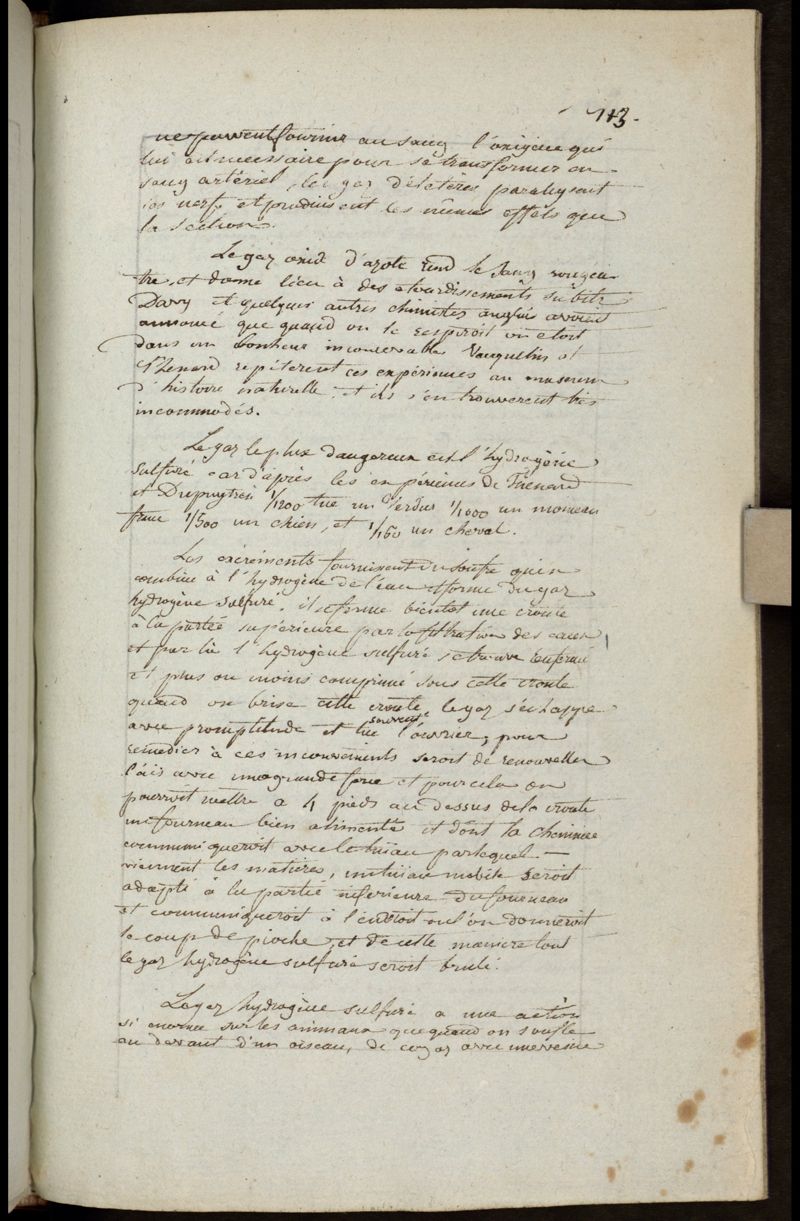 113.
ne peuvent fournir au sang l'oxigène qui
lui est necessaire pour se transformer en
sang artériel, les gaz délétères paralysent
les nerfs et produisent les mêmes effets que
la section.
Le gaz oxid d'azote rend le sang rougea-
tre, et donne lieu à des etourdissements subits
Davy et quelques autres chimistes anglais avoient
annoncé que quand on le respiroit on etoit
dans un bonheur inconcevable Vauquelin et
Thenard repéterent ces expériences au museum
d'histoire naturelle et ils s'en trouverent très
incommodés.
Le gaz le plus dangereux est l'hydrogène
sulfuré car d'après les expériences de Thénard
et Dupuytren 1/1200 tue un verdier 1/1000 un moineau
franc 1/500 un chien, et 1/160 un cheval.
Les excréments fournissent du soufre qui se
combine à l'hydrogène de l'eau et forme du gaz
hydrogène sulfuré. il se forme bientot une croute
à la partie supérieure par la filtration des eaux
et par là l'hydrogène sulfuré se trouve renfermé
et plus ou moins comprimé sous cette croute
quand on brise cette croute le gaz s'échappe
avec promptitude et tue souvent l'ouvrier, pour
remedier à ces inconvenients seroit de renouveller
l'air avec une grande force et pour cela on
pourroit mettre a 4 pieds au dessus de la croute
un fourneau bien alimenté et dont la cheminée
communiqueroit avec le tuiau par lequel
viennent les matieres, un tuiau mobile seroit
adapté à la partie inferieure du fourneau
et communiqueroit à l'endroit ou l'on donneroit
le coup de pioche, et de cette maniere tout
le gaz hydrogène sulfuré seroit brulé.
Le gaz hydrogène sulfuré a une action
si enorme sur les animaux que quand on souffle
au devant d'un oiseau, de ce gaz avec une vessie